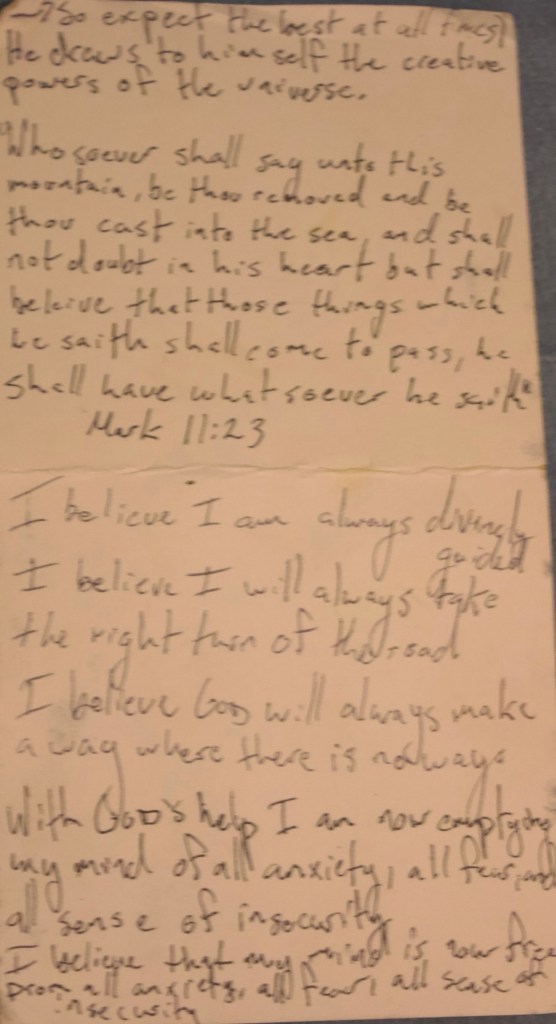 → So expect the best at all times!
He draws to himself the creative
powers of the universe.
"Whosoever shall say unto this
mountain, be thou removed and be
thou cast into the sea, and shall
not doubt in his heart but shall
beleive that those things which
he saith shall come to pass, he
shall have whatsoever he saith"
Mark 11:23
I believe I am always divinely
guided
I believe I will always take
the right turn of the road
I believe GOD will always make
a way where there is no ways
With GOD's help I am now emptying
my mind of all anxiety, all fear, and
all sense of insecurity
I believe that my mind is now free
from all anxiety, all fear, all sense of
insecurity